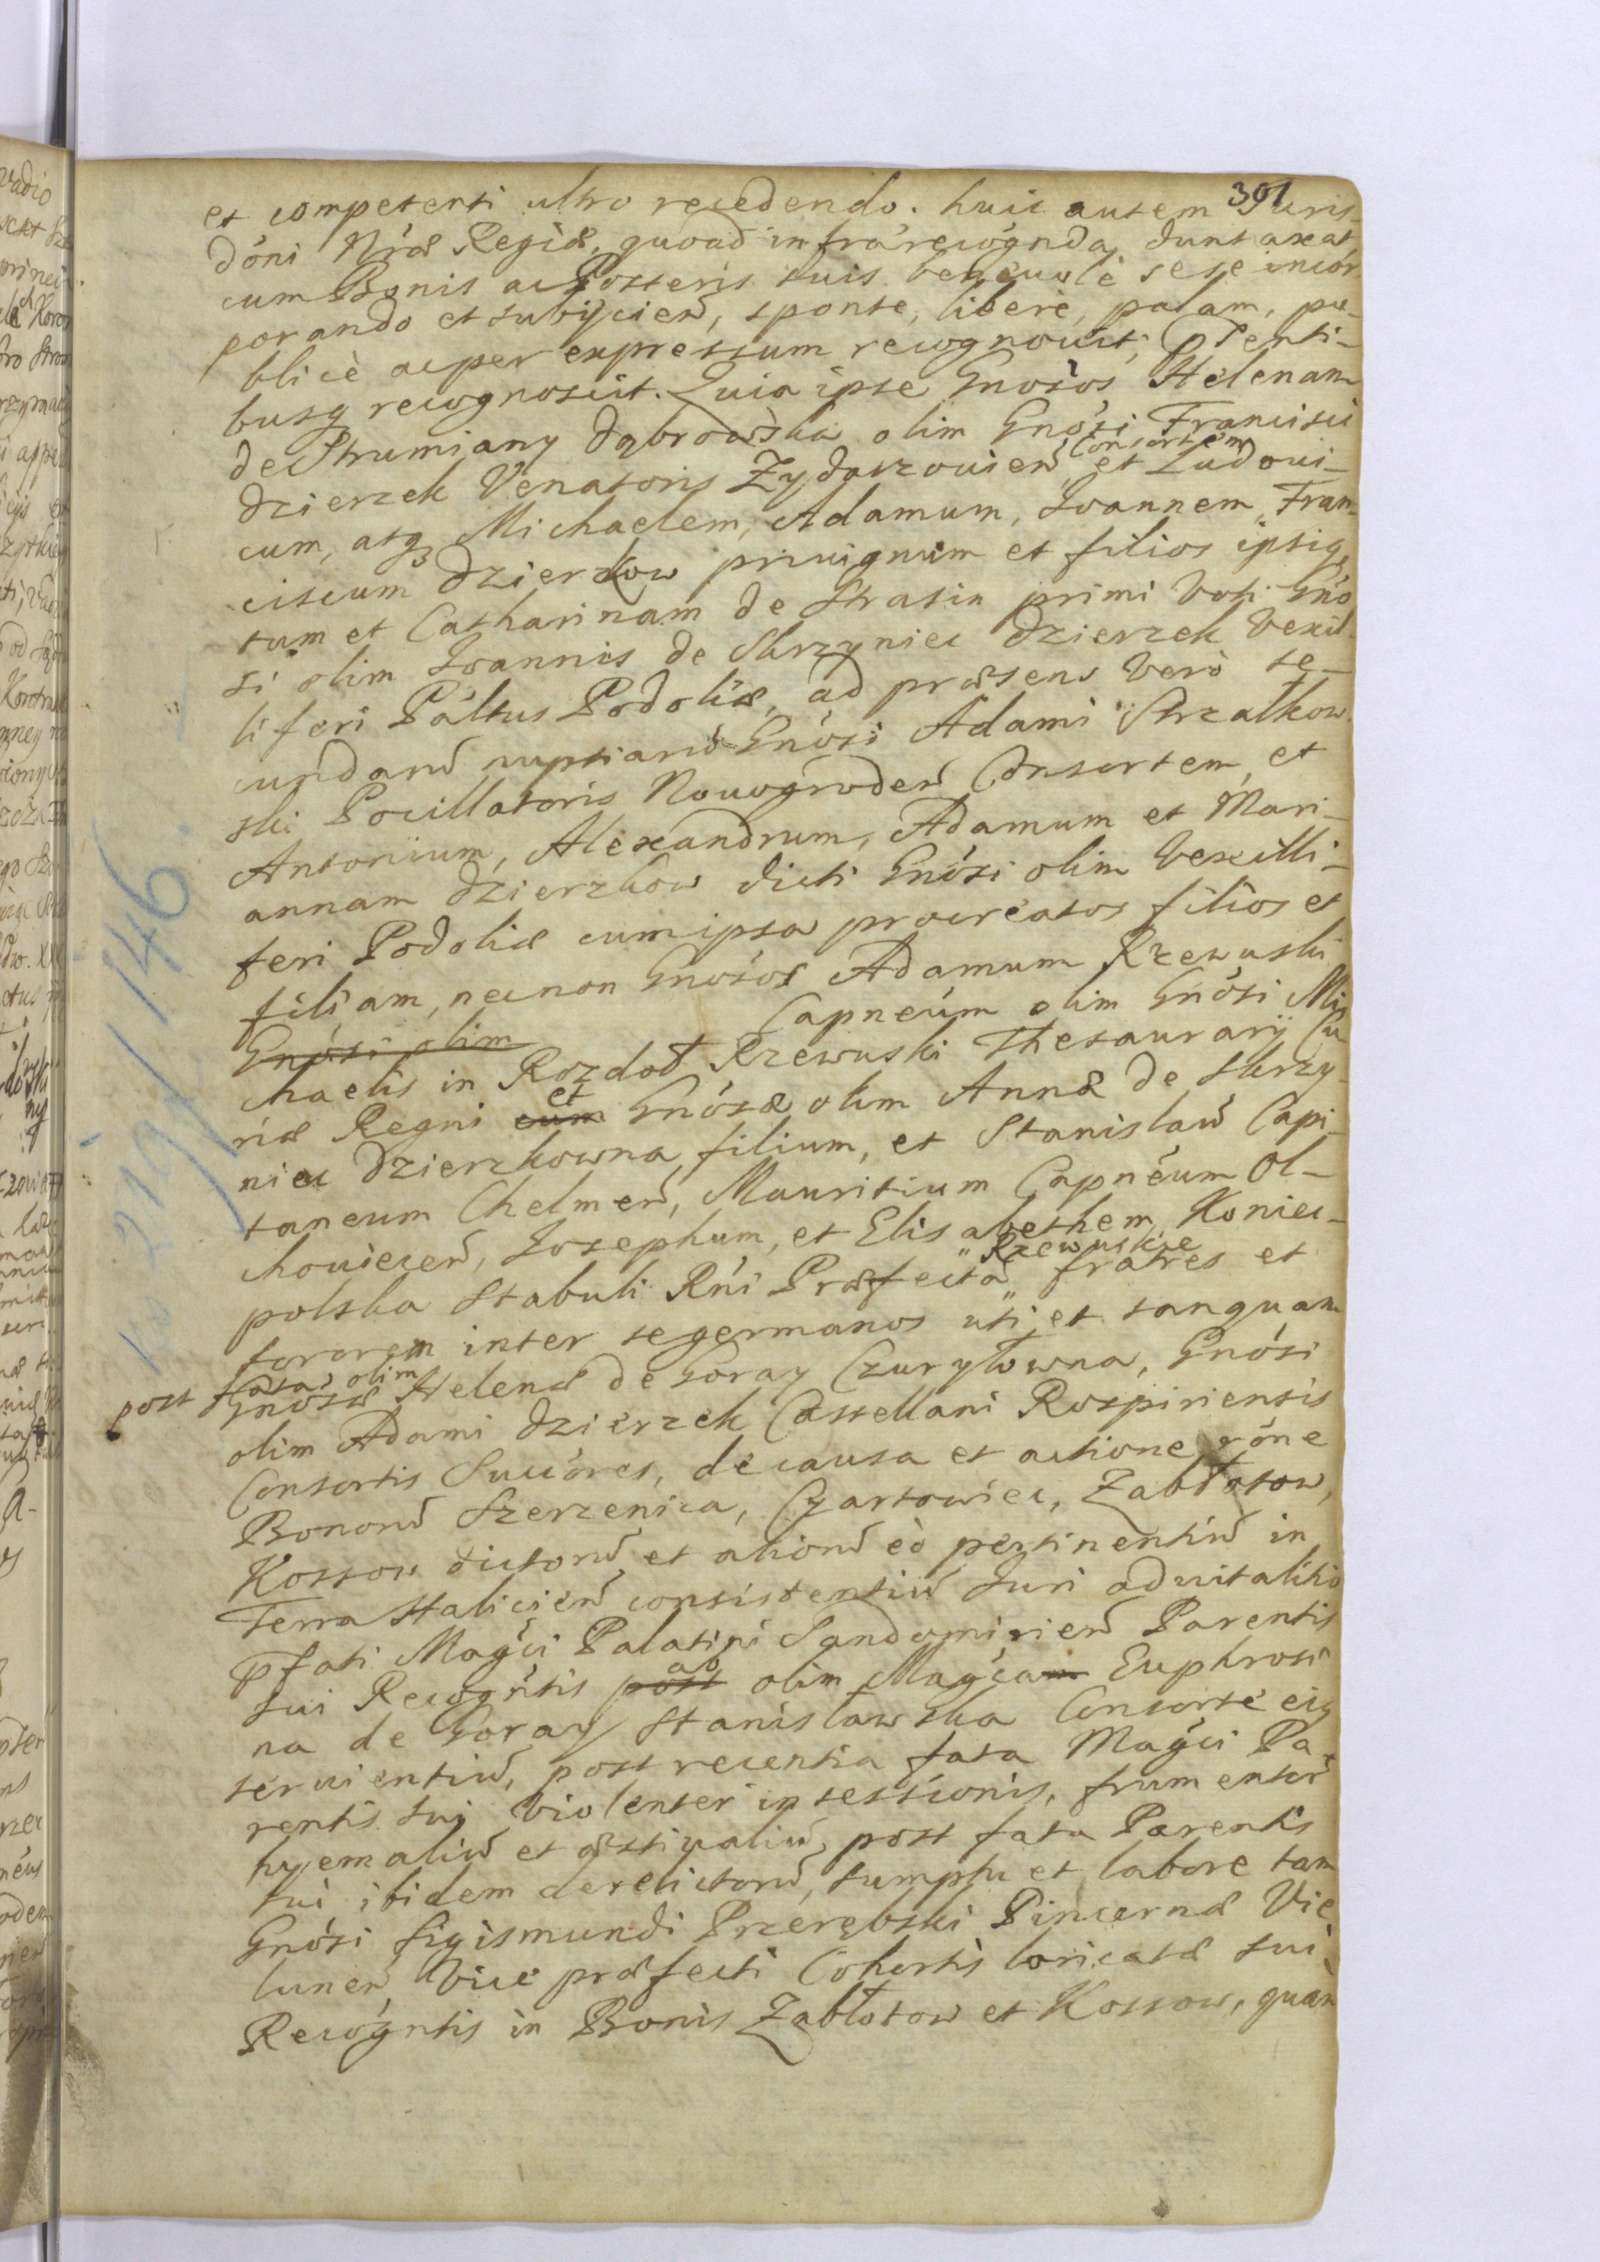 391
et competenti ultro recedendo. huic autem Juris-
dóni Nrǽ Regiǽ, quoad infrarecógnda duntaxat
cum Bonis ac Posteris suis beneuolè sese incor-
porando et subijcień, sponte, liberè, palam, pu-
blicè ac per expressum recognouit, Pńti-
busq recognoscit. Quia ipse Gnósos Helenam
de Strumiany Dąbrowska olim Gnósi Francisci
Dzierzek Venatoris Zydaczouień Consortem et Ludoui-
cum, atq3 Michaelem, Adamum, Joannem, Fran-
ciscum Dzierzkow priuignum et filios ipsiq
tum et Catharinam de Strasin primi Voti Gnó-
si olim Joannis de Skrzyniec Dzierzek Vexil-
liferi Páltus Podoliæ, ad præsens Verò se-
cundarũ nuptiarũ Gnósi Adami Strzałkow-
ski Pocillatoris Nouogrodeń Consortem, et
Antonium, Alexandrum, Adamum et Mari-
annam Dzierzkow dicti Gnósi olim Vexilli-
feri Podoliæ cum ipsa procreatos filios et
filiam, necnon Gnósos Adamum Rzewuski
Gnósi olim Capneúm olim Gnósi Mi-
chaelis in Rozdoł Rzewuski Thesaurarij Cu-
riæ Regni cum et Gnósæ olim Annæ de Skrzy-
niec Dzierzkowna filium, et Stanislaũ Capi-
taneum Chelmeń, Mauritium Capnéum Ol-
chouieceń, Josephum, et Elisabethem Koniec-
polska Stabuli Rńi Præfecta Rzewuskie fratres et
sororem inter se germanos uti et tanquam
post fata olim
Gnósæ Helenæ de Goray Czuryłowna, Gnósi
olim Adami Dzierzek Castellani Rospiriensis
Consortis Succóres, de causa et actione róne
Bonorũ Szerzenica, Czartowiec, Zabłotow,
Kossow dictorũ et aliorũ eò pertinentiũ in
Terra Halicień consistentiũ Juri aduitalitio
Pfati Magći Palatini Sandomirień Parentis
sui Recogńtis post ab olim Magća Euphrosi-
na de Goray Stanisławska Consorte eiq
seruientiũ, post recentia fata Magći Pa-
rentis sui Violenter intessionis, frumentorũ
hyemaliũ et æstiualiũ, post fata Parentis
sui ibidem derelictorũ, sumptu et labore tam
Gnósi Sigismundi Przerębski Pincernæ Vie-
luneń Vice præfecti Cohortis loricatæ sui
Recógntis in Bonis Zabłotow et Kossow, quàm